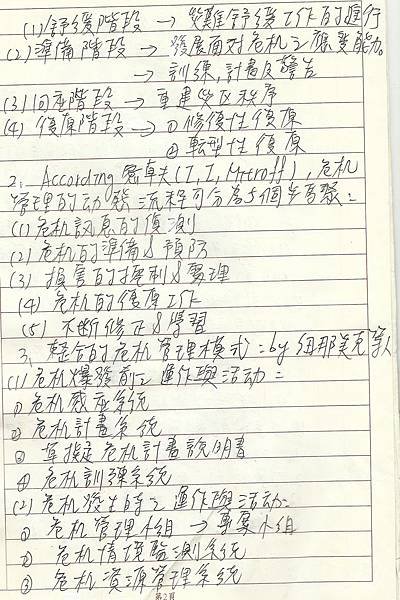 (1)舒緩階段 → 災難舒緩工作的進行
(2)準備階段 → 發展面对危机之應变能力。
→ 訓練,計畫及警告
(3)回應階段 → 重建災区秩序
(4) 復原階段 → ① 修復性復原
② 轉型性復原
2、According 密卓夫(I, I, Mitroff),危机
管理的动態流程可分為5個步驟:
(1)危机訊息的偵測
(2)危机的準備&預防
(3) 損害的控制&處理
(4) 危机的復原工作
(5) 不斷修正&學習
3、整合的危机管理模式:by 紐那美克等人
(1)危机爆發前之運作與活动:
① 危机感應系統
② 危机計畫系統
③ 草擬危机計畫說明書
④ 危机訓練系統
(2)危机發生時之運作與活动:
① 危机管理小組 → 專業小組
② 危机情境監測系統
③ 危机資源管理系統
第2頁